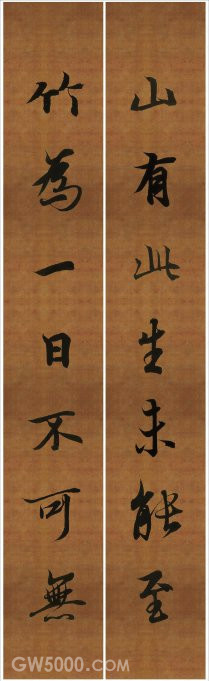 山有此生未能至
竹為一日不可無
GW5000.com